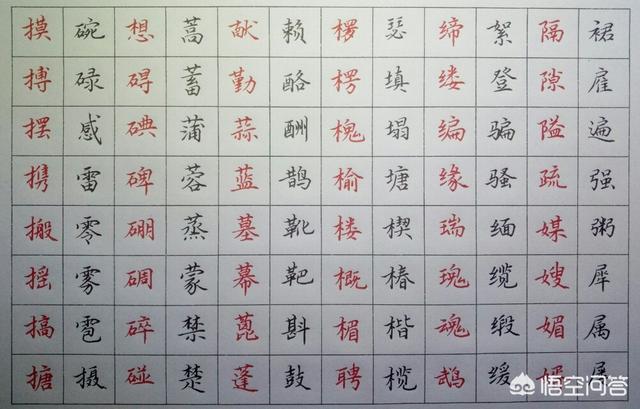 摸 碗 想 蒿 献 赖 椤 瑟 缔 絮 隔 裙
搏 碌 碍 蓄 勤 酪 楞 填 缕 登 隙 雇
摆 感 碘 蒲 蒜 酬 槐 塌 编 骗 隘 遍
携 雷 碑 蓉 蓝 鹊 榆 塘 缘 骚 疏 强
搬 零 硼 蒸 墓 靴 楼 楔 瑞 缅 媒 粥
摇 雾 碉 蒙 幕 靶 概 椿 瑰 缆 嫂 犀
搞 雹 碎 禁 蓖 斟 楣 楷 魂 缎 媚 属
搪 摄 碰 楚 蓬 鼓 聘 榄 鹉 缓
悟空问答